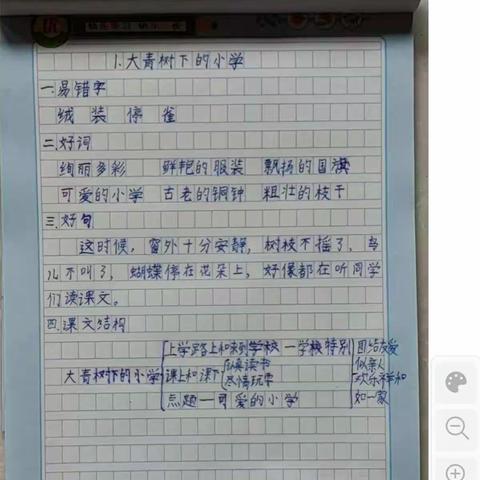 1.大青树下的小学
一.易错字
绒 装 停 雀
二.好词
绚丽多彩 鲜艳的服装 飘扬的国旗
可爱的小学 古老的铜钟 粗壮的枝干
三.好句
这时候，窗外十分安静，树枝不摇了，鸟
儿不叫了，蝴蝶停在花朵上，好像都在听同学
们读课文。
四.课文结构
上学路上和来到学校一学校特别 团结友爱
大青树下的小学 课上和课下 认真读书 似亲人
尽情玩耍 欢乐祥和
点题一可爱的小学 如一家